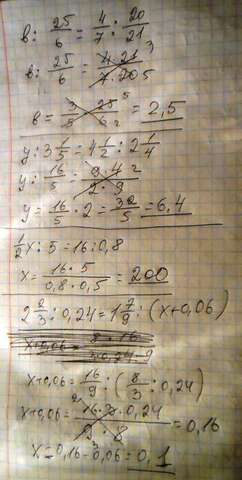 в : 25/6 = 4/7 : 20/21
в : 25/6 = 4·21/7·20 3 5
в = 3·25/5·6 5 2 = 2,5
y : 3 1/5 = 4 1/2 : 2 1/4
y : 16/5 = 9·4/2·9 2
y = 16/5 · 2 = 32/5 = 6,4
1/2 x : 5 = 16 : 0,8
x = 16·5/0,8·0,5 = 200
2 2/3 : 0,24 = 1 7/9 : (x+0,06)
x+0,06 = 16/9 : (8/3 : 0,24)
x+0,06 = 16·3·0,24/9·8 2 3 = 0,16
x = 0,16-0,06 = 0,1